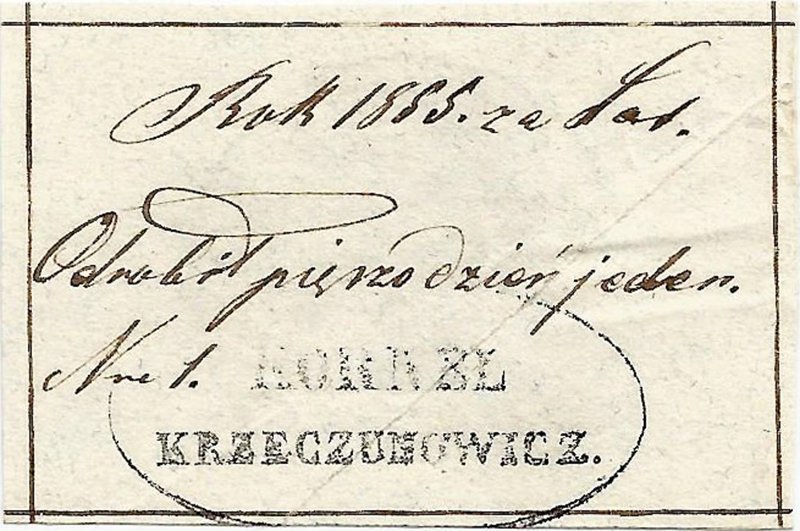 Rok 1855. za Las.
Odrobił pięszo dzień jeden.
Nro 1.
KORNEL
KRZECZUNOWICZ.